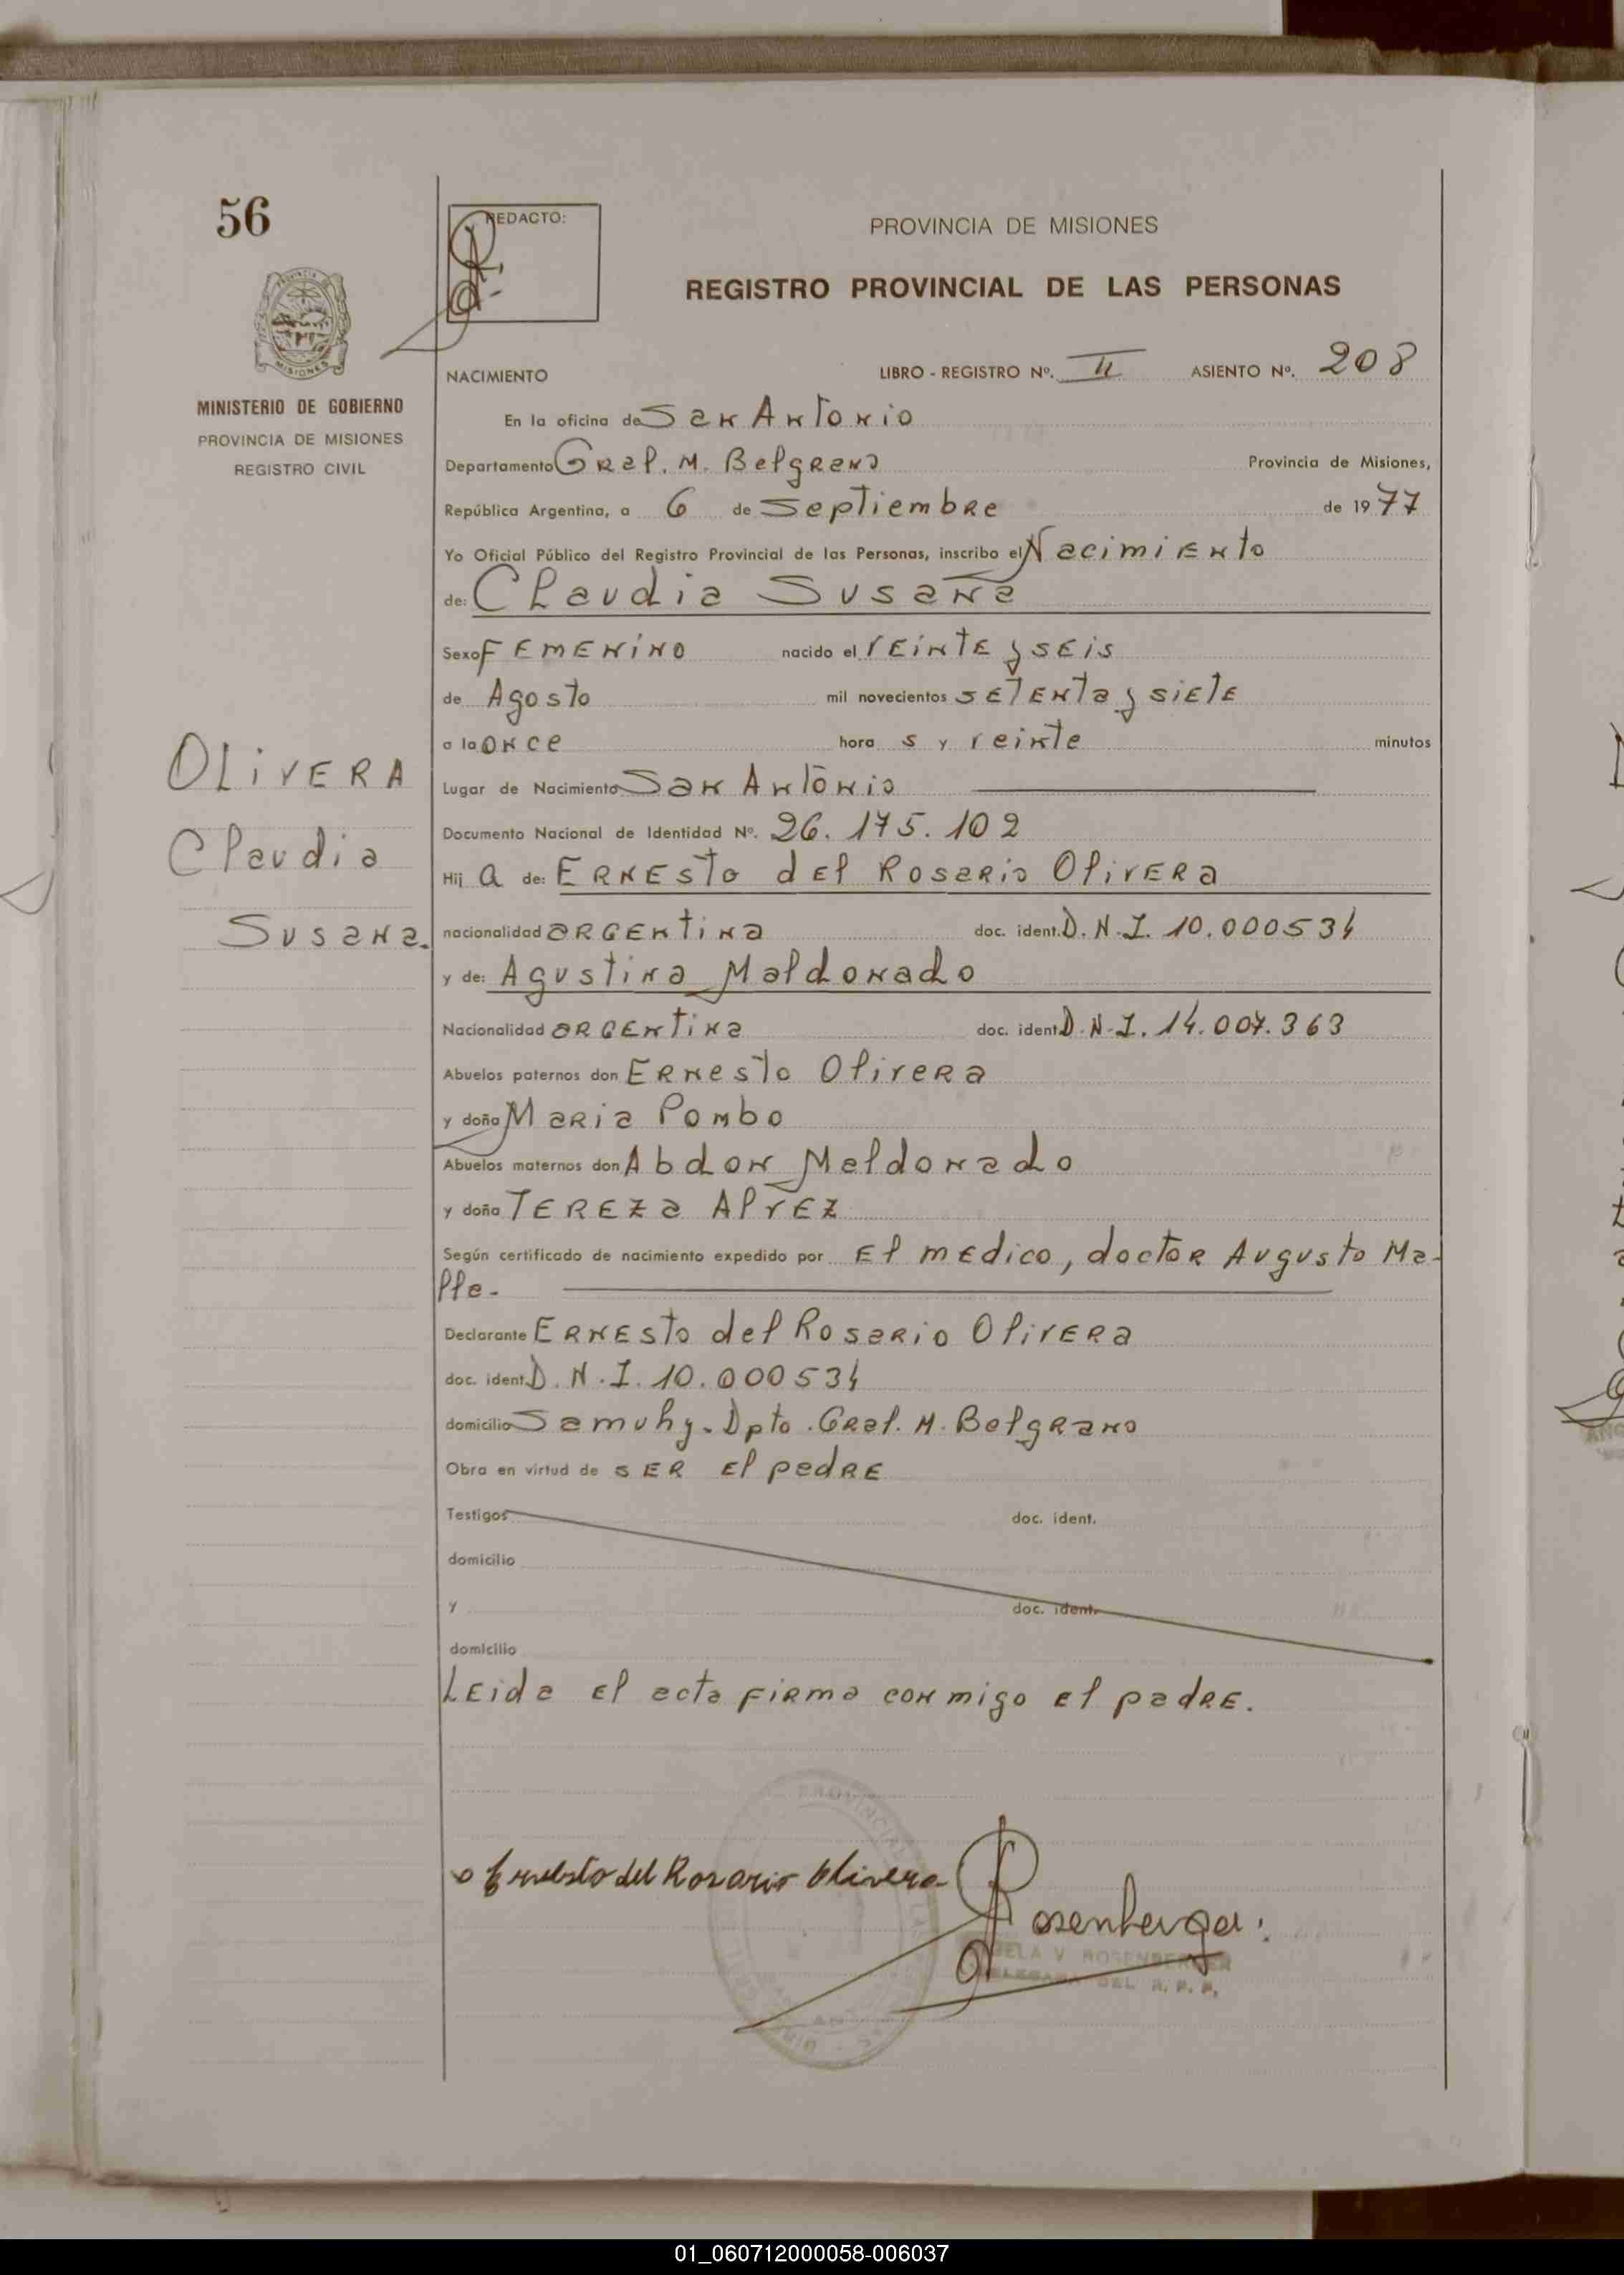 56
REDACTO:
PROVINCIA DE MISIONES
REGISTRO PROVINCIAL DE LAS PERSONAS
MISIONES
MINISTERIO DE GOBIERNO
PROVINCIA DE MISIONES
REGISTRO CIVIL
NACIMIENTO LIBRO - REGISTRO Nº. II ASIENTO Nº. 208
En la oficina de San Antonio
Departamento Gral. M. Belgrano Provincia de Misiones,
República Argentina, a 6 de Septiembre de 1977
Yo Oficial Público del Registro Provincial de las Personas, inscribo el Nacimiento
de: Claudia Susana
Sexo FEMENINO nacido el VEINTE y SEIS
de Agosto mil novecientos SETENTA y SIETE
a la once hora s y veinte minutos
Lugar de Nacimiento San Antonio
Documento Nacional de Identidad Nº. 26.175.102
Hij a de: ERNESTO dEl Rosario OlivERa
nacionalidad ARGENtina doc. ident. D.N.I. 10.000534
y de: Agustina Maldonado
Nacionalidad ARGENTINA doc. ident. D.N.I. 14.007.363
Abuelos paternos don Ernesto Olivera
y doña Maria Pombo
Abuelos maternos don Abdon Maldonado
y doña TEREZA AlVEZ
Según certificado de nacimiento expedido por El medico, doctor Augusto Ma-
lle.
Declarante ERNESto del Rosario OlivERa
doc. ident. D.N.I. 10.000534
domicilio Samuhy. Dpto. Gral. M. Belgrano
Obra en virtud de SER El padRE
Testigos doc. ident.
domicilio
y doc. ident.
domicilio
LEida el acta firma conmigo el padRE.
OLiVERA
Claudia
Susana.
Ernesto del Rosario Olivera
Rosenberger
ROSENBERGER
DEL R. P. P.
01_060712000058-006037